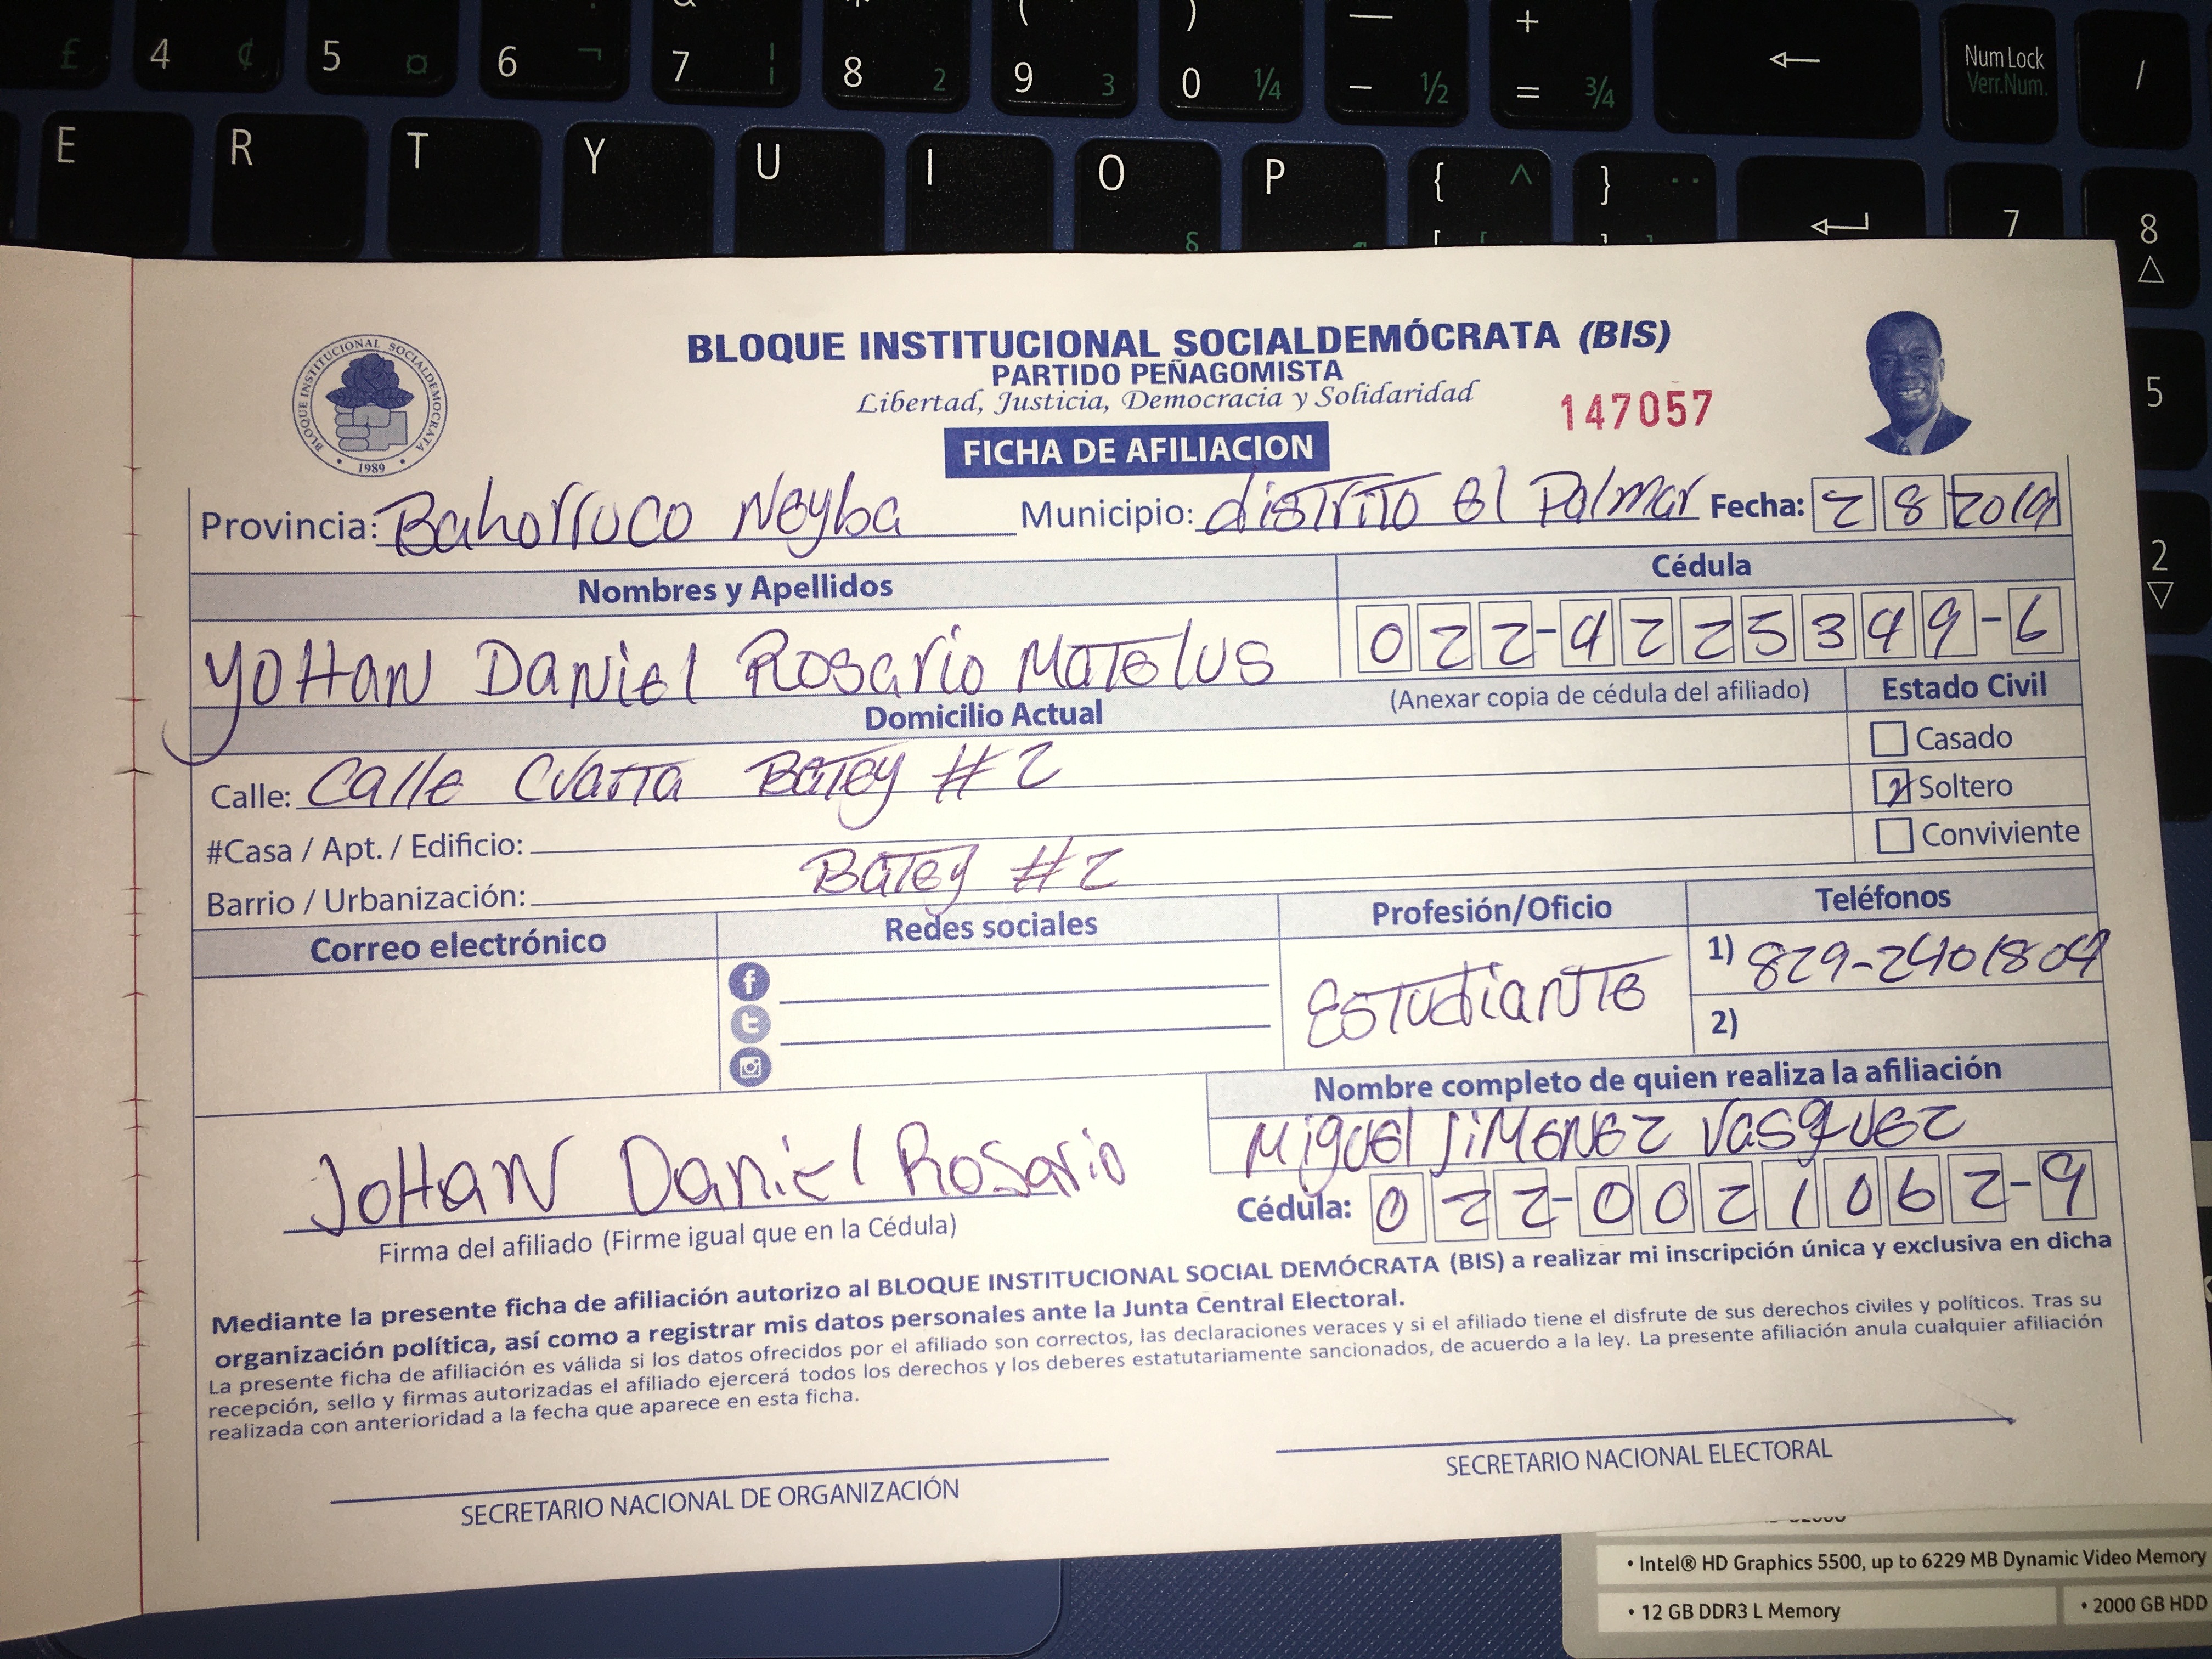 £ 4 ¢ 5 ¤ 6 ¬ 7 ¦ 8 2 9 3 0 ¼ - ½ + = ¾ ← Num Lock Verr.Num. /
E R T Y U I O P { ^ } 7 8
5
2
BLOQUE INSTITUCIONAL SOCIALDEMÓCRATA (BIS)
PARTIDO PEÑAGOMISTA
Libertad, Justicia, Democracia y Solidaridad
147057
BLOQUE INSTITUCIONAL SOCIALDEMOCRATA
• 1989 •
FICHA DE AFILIACION
Provincia: Bahorruco Neyba Municipio: distrito el Palmar Fecha: 2 8 2019
Nombres y Apellidos Cédula
Yohan Daniel Rosario Matelus 022-4225349-6
(Anexar copia de cédula del afiliado) Estado Civil
Domicilio Actual
Casado
Calle: Calle Cuarta Batey #2
Soltero
#Casa / Apt. / Edificio:
Conviviente
Barrio / Urbanización: Batey #2
Correo electrónico Redes sociales Profesión/Oficio Teléfonos
Estudiante
1) 829-2401804
2)
Nombre completo de quien realiza la afiliación
Miguel Jimenez Vasquez
Johan Daniel Rosario
Cédula: 022-0021062-9
Firma del afiliado (Firme igual que en la Cédula)
Mediante la presente ficha de afiliación autorizo al BLOQUE INSTITUCIONAL SOCIAL DEMÓCRATA (BIS) a realizar mi inscripción única y exclusiva en dicha
organización política, así como a registrar mis datos personales ante la Junta Central Electoral.
La presente ficha de afiliación es válida si los datos ofrecidos por el afiliado son correctos, las declaraciones veraces y si el afiliado tiene el disfrute de sus derechos civiles y políticos. Tras su
recepción, sello y firmas autorizadas el afiliado ejercerá todos los derechos y los deberes estatutariamente sancionados, de acuerdo a la ley. La presente afiliación anula cualquier afiliación
realizada con anterioridad a la fecha que aparece en esta ficha.
SECRETARIO NACIONAL DE ORGANIZACIÓN
SECRETARIO NACIONAL ELECTORAL
• Intel® HD Graphics 5500, up to 6229 MB Dynamic Video Memory
• 12 GB DDR3 L Memory • 2000 GB HDD